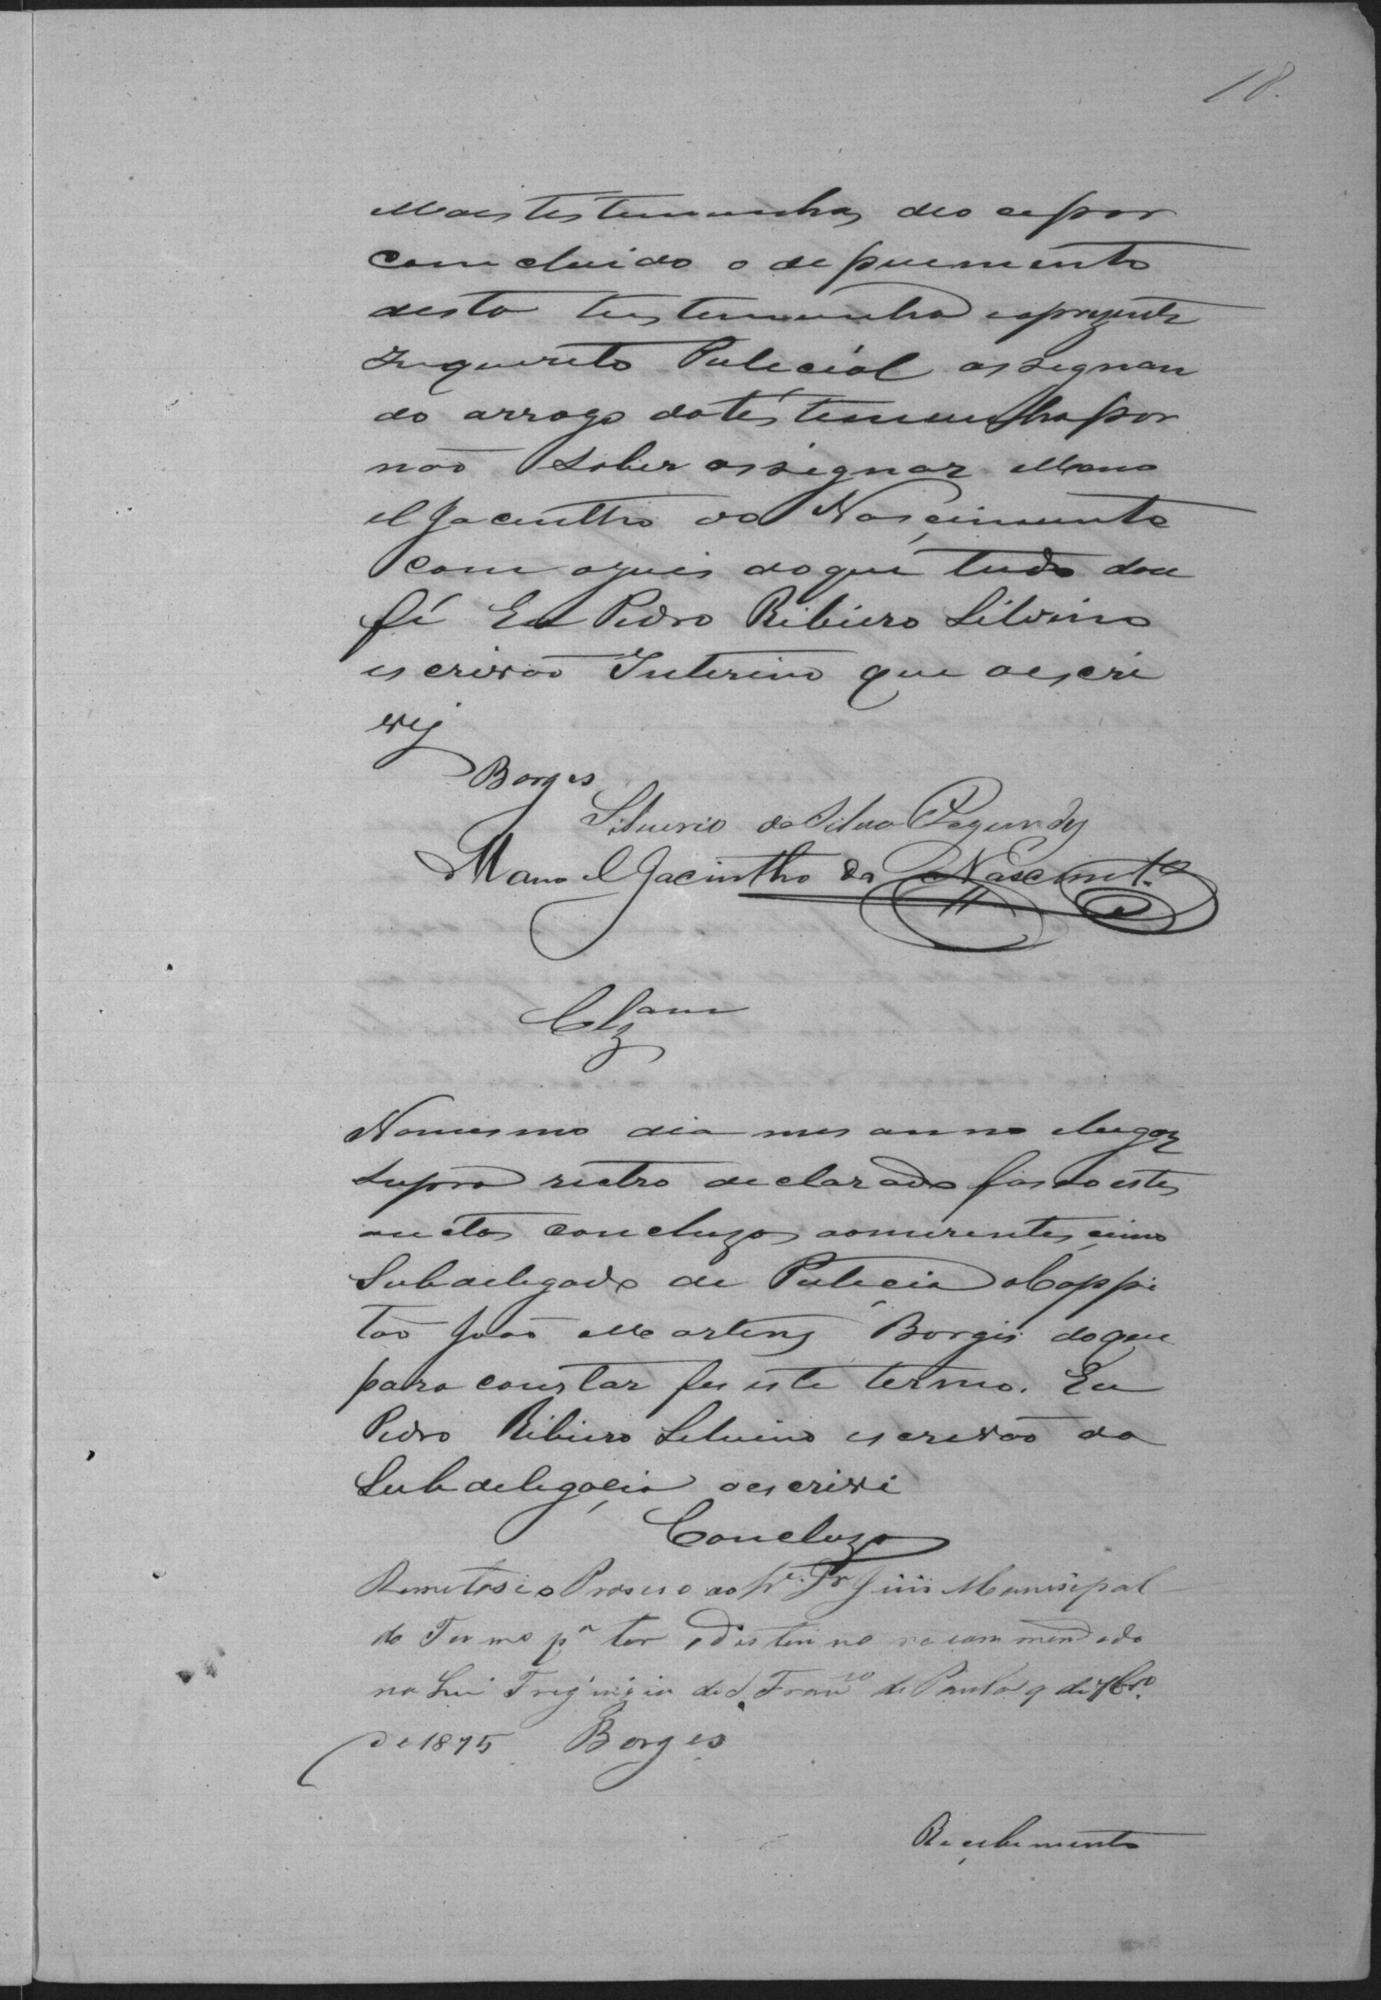 18.
Mais testemunhas deo se por
comcluido o depuemento
desta testemunha e o prezente
Inquerito Pulecial assignan
do arrogo da testemunha por
não saber assignar Mano
el Jacintho do Nascimento
com o juis do que tudo dou
fé Eu Pedro Ribeiro Silvino
escrivão Interino que o escri
vy
Borges
Silverio da Silva Fagundes
Manoel Jacintho do Nascimt.o
Clzam
No mesmo dia mes anno e lugar
supra rectro declarado faso estes
auctos concluzos ao merentescimo
Subdelegado de Pulicia o Cappi
tão João Martins Borges do que
para constar fes este termo. Eu
Pedro Ribeiro Silvino escrivão da
Subdelegacia o escrivi
Concluzo
Remetase o Proseso ao Sr. Dr Juis Munisipal
do Termo pa ter o Distino recommendado
na Lei Freguizia de S. Franco de Paula 9 de 7bro
de 1875 Borges
Reçebimento